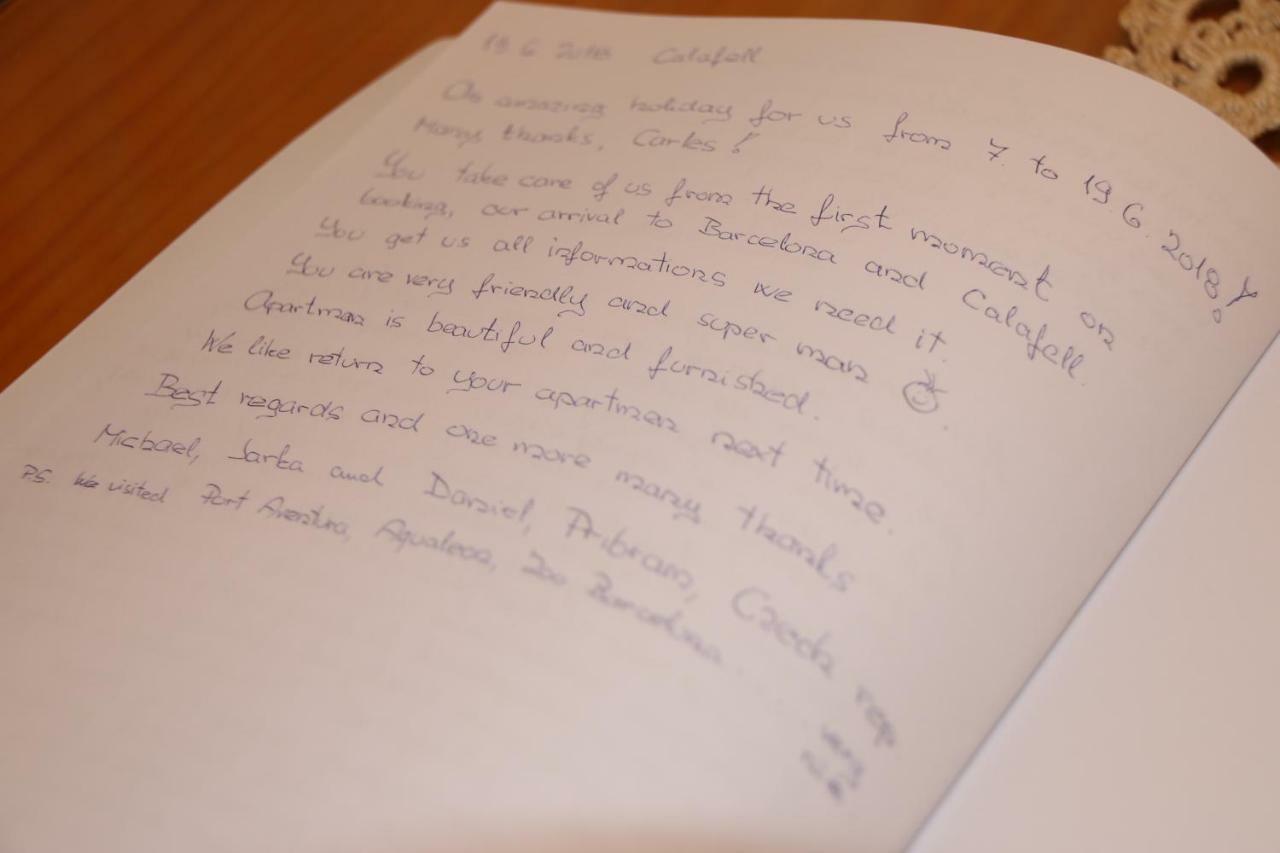 19.6 2018 Calafell
An amazing holiday for us from 7. to 19.6.2018!
Many thanks, Carles!
You take care of us from the first moment on
booking, our arrival to Barcelona and Calafell.
You get us all informations we need it.
You are very friendly and super man ☺.
Apartman is beautiful and furnished.
We like return to your apartmen next time.
Best regards and one more many thanks
Michael, Jarka and Daniel, Pribram, Czech rep
P.S. We visited Port Aventura, Aqualeon, Zoo Barcelona...